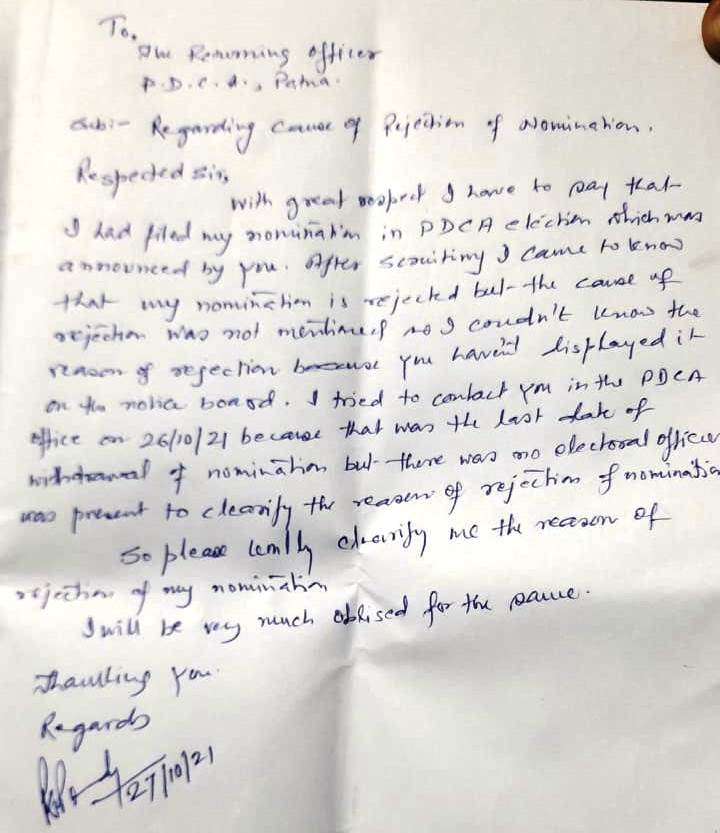 To,
The Returning Officer
P.D.C.A., Patna.
Sub:- Regarding Cause of Rejection of Nomination.
Respected Sir,
With great respect I have to say that
I had filed my nomination in PDCA election which was
announced by you. After Scruitiny I came to know
that my nomination is rejected but the cause of
rejection was not mentioned so I coudn't know the
reason of rejection because you haven't displayed it
on the notice board. I tried to contact you in the PDCA
office on 26/10/21 because that was the last date of
withdrawal of nomination but there was no electoral officer
was present to clearify the reason of rejection of nomination
So please kindly clearify me the reason of
rejection of my nomination
I will be very much oblised for the same.
Thanking you.
Regards
27/10/21